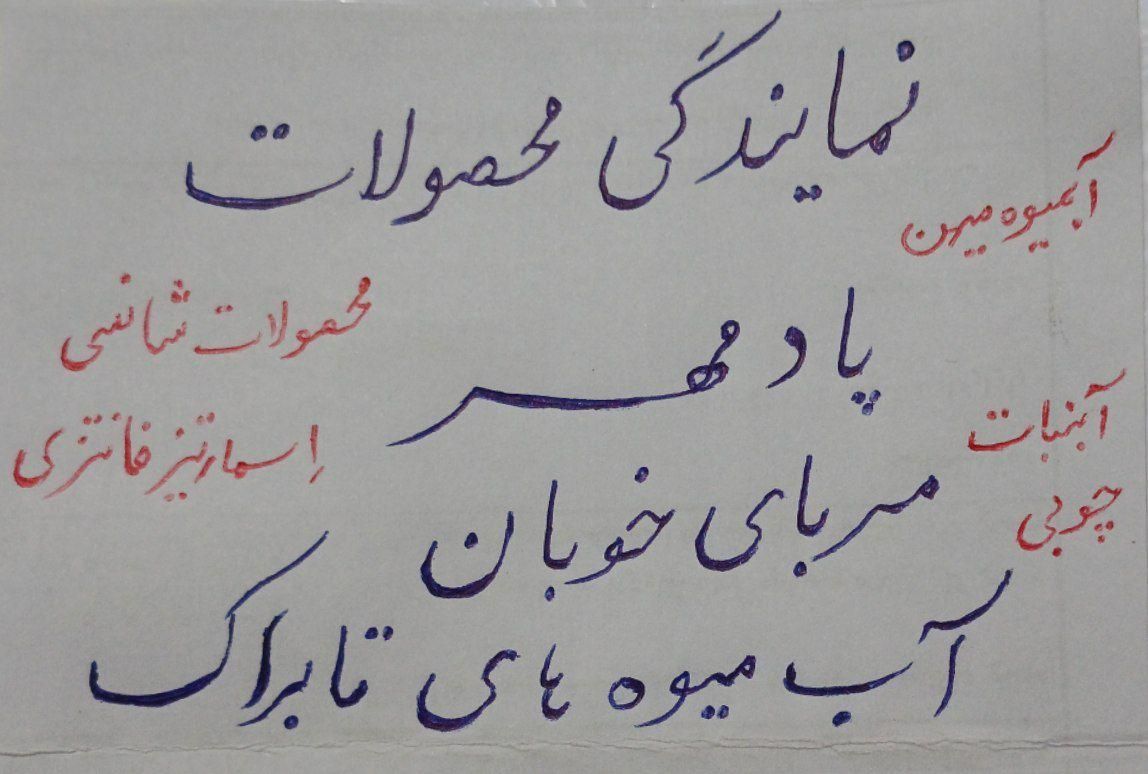 نمایندگی محصولات
آبمیوه میهن
پاد مهر
محصولات شانسی
آبنبات
چوبی
اسمارتیز فانتزی
مربای خوبان
آب میوه های تابراک